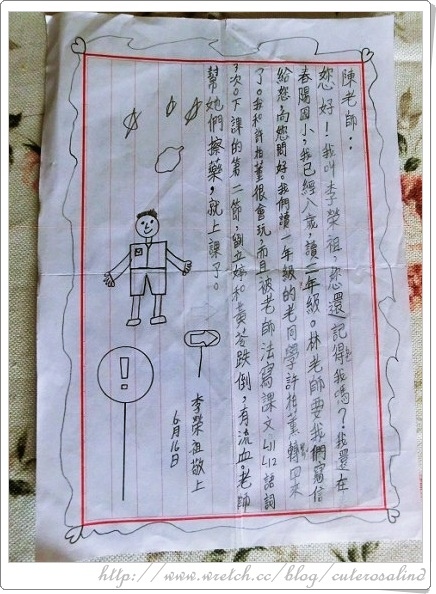 陳老師：
妳好！我叫李榮祖，您還記得我嗎？我還在
春陽國小，我已經八歲，讀二年級。林老師要我們寫信
給您，向您問好。我們讀一年級的老同學許柏菫轉回來
了。我和許柏菫很會玩，而且被老師法寫課文、L11L12語詞
3次。下課的第二節，劉立婷和黃苓跌倒，有流血。老師
幫她們擦藥，就上課了。
李榮祖敬上
6月16日
http://www.wretch.cc/blog/cuterosalind